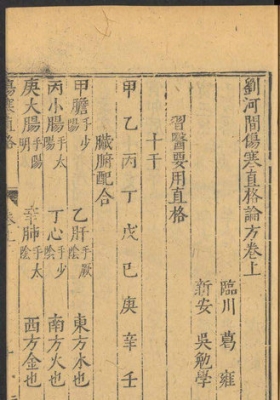 劉河間傷寒直格論方卷上
臨川 葛雍
新安 吳勉學
習醫要用直格
十干
甲乙丙丁戊巳庚辛壬
臟腑配合
甲膽手少陽 乙肝手厥陰 東方木也
丙小腸手太陽 丁心手少陰 南方火也
庚大腸手陽明 辛肺手太陰 西方金也
傷寒直格